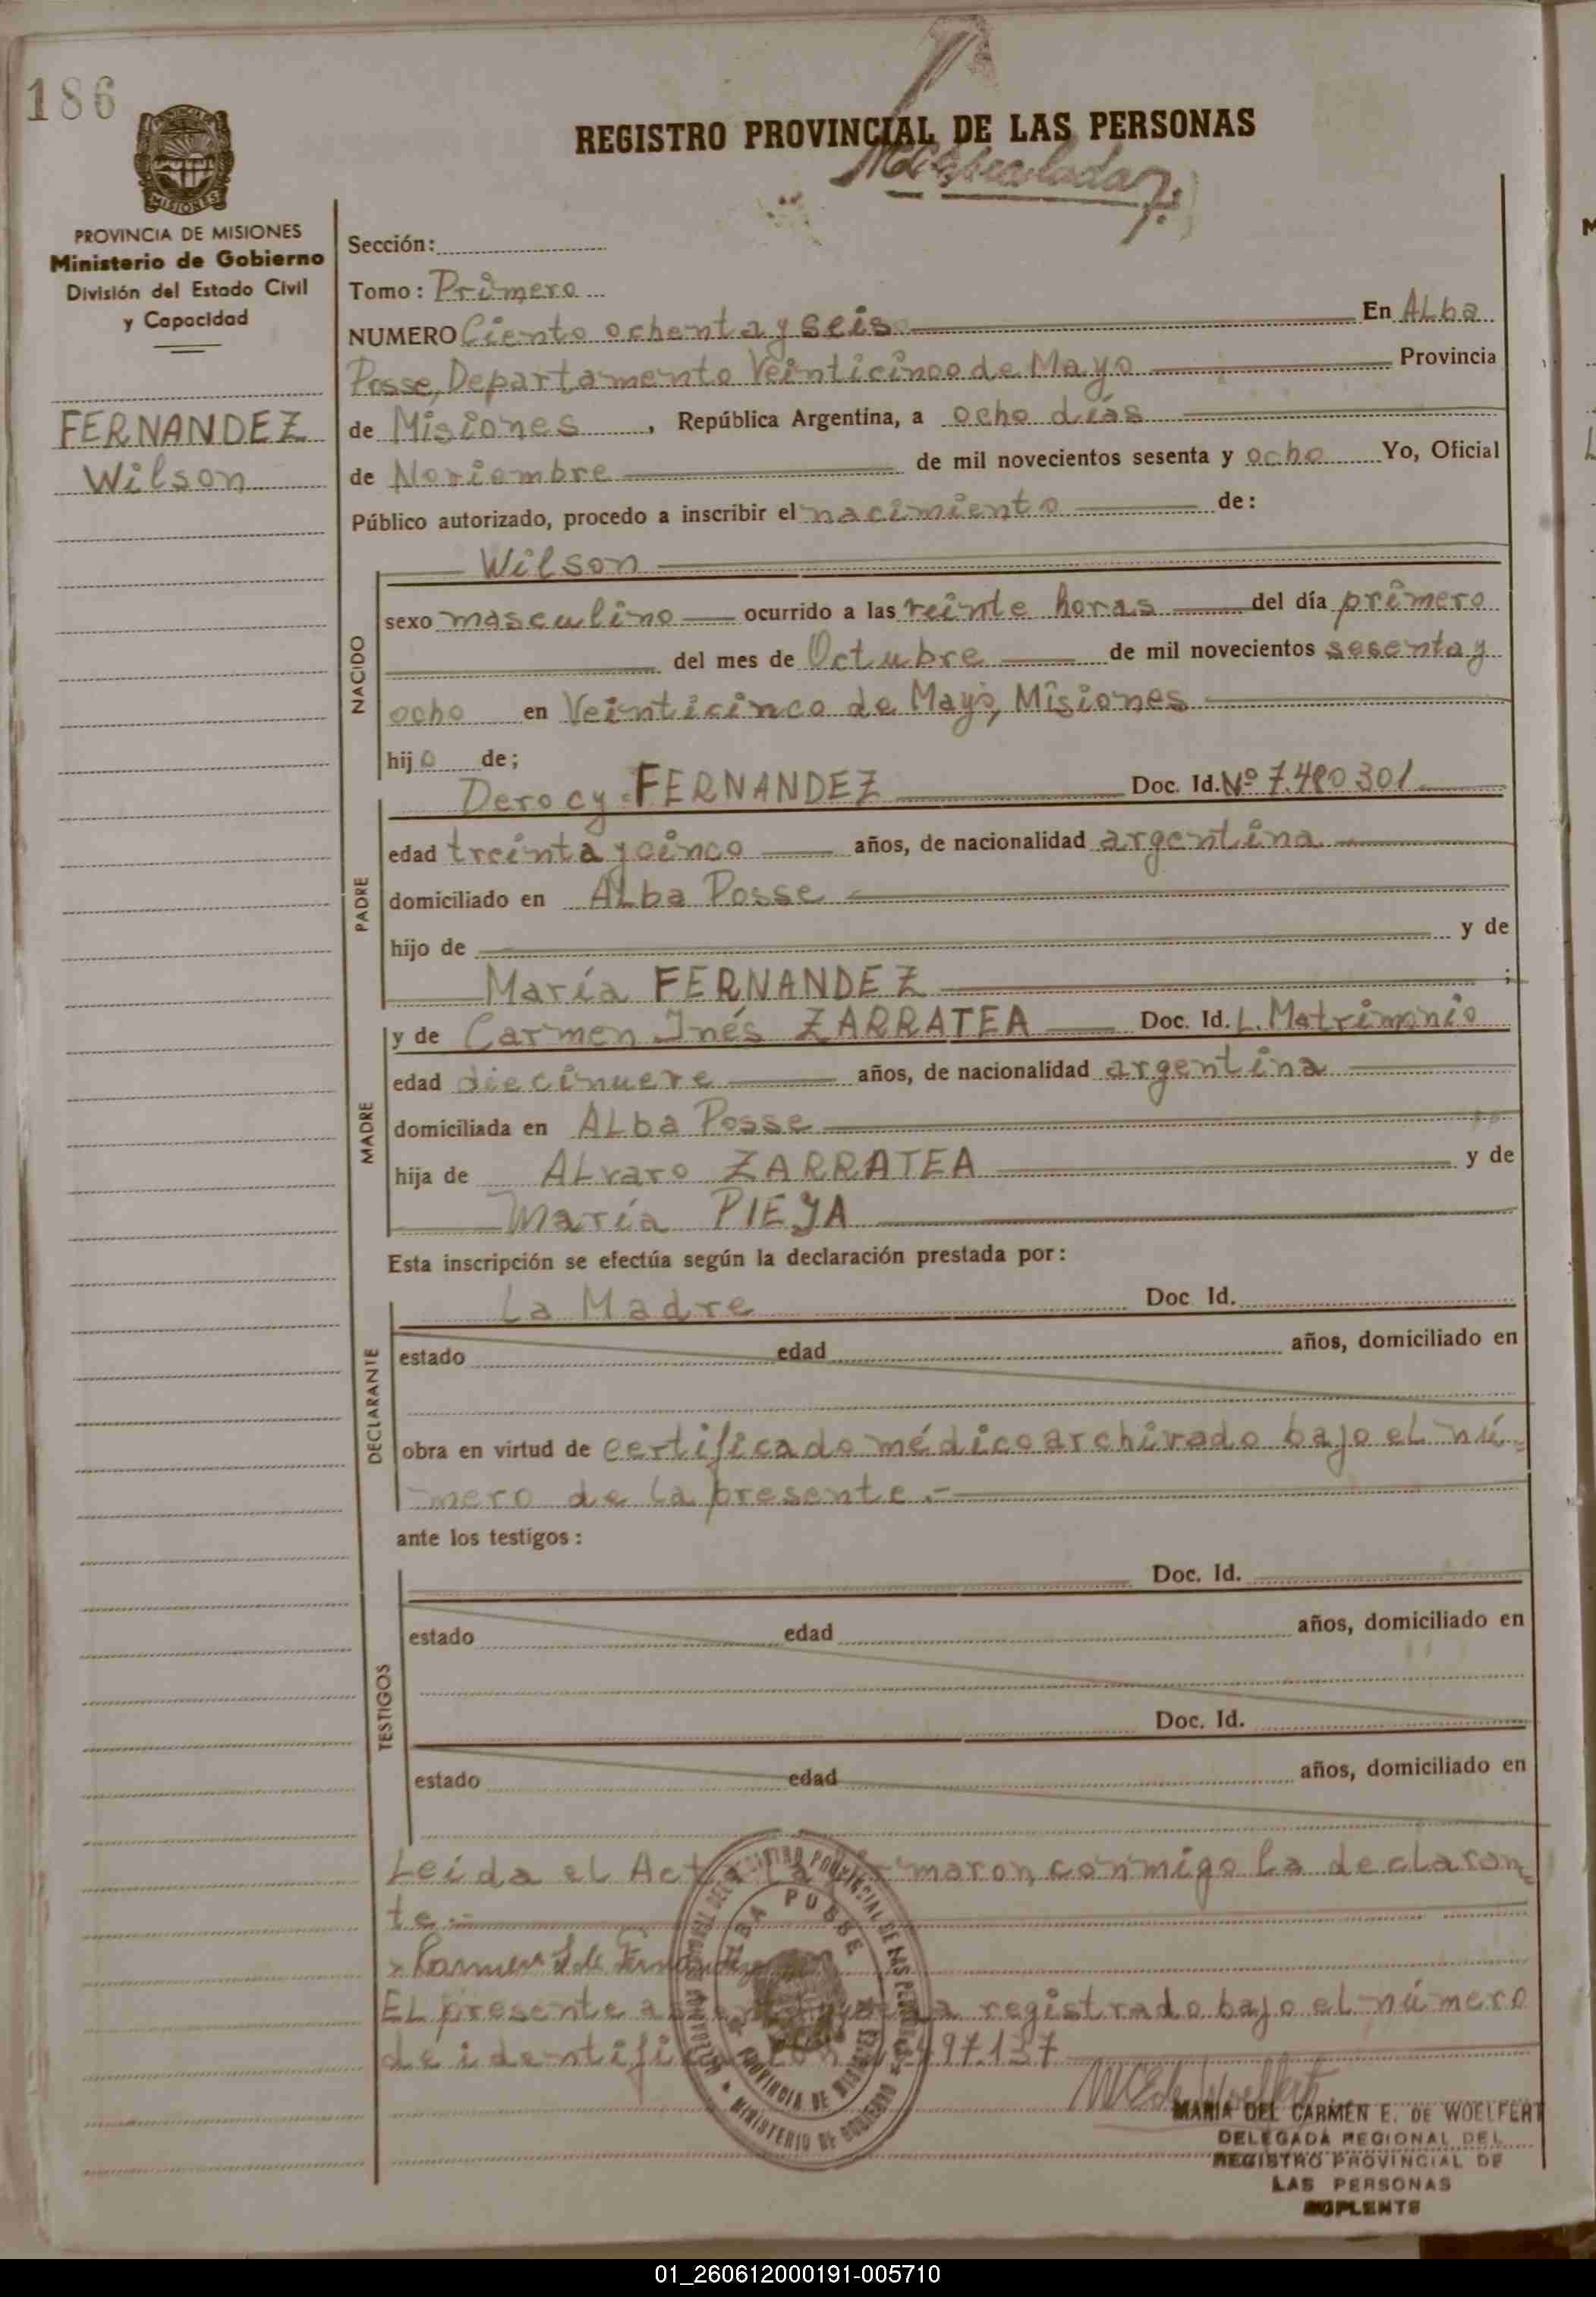 186
REGISTRO PROVINCIAL DE LAS PERSONAS
MISIONES
PROVINCIA DE MISIONES
Ministerio de Gobierno
División del Estado Civil
y Capacidad
FERNANDEZ
Wilson
Sección:
Tomo: Primero
NUMERO Ciento ochenta y seis En Alba
Posse, Departamento Veinticinco de Mayo Provincia
de Misiones, República Argentina, a ocho días
de Noviembre de mil novecientos sesenta y ocho Yo, Oficial
Público autorizado, procedo a inscribir el nacimiento de:
NACIDO
Wilson
sexo masculino ocurrido a las veinte horas del día primero
del mes de Octubre de mil novecientos sesenta y
ocho en Veinticinco de Mayo, Misiones
hijo de;
PADRE
Derocy FERNANDEZ Doc. Id. Nº 7.480301
edad treinta y cinco años, de nacionalidad argentina
domiciliado en Alba Posse
hijo de y de
María FERNANDEZ ;
MADRE
y de Carmen Inés ZARRATEA Doc. Id. L. Matrimonio
edad diecinueve años, de nacionalidad argentina
domiciliada en Alba Posse
hija de Alvaro ZARRATEA y de
María PIEYA
Esta inscripción se efectúa según la declaración prestada por:
DECLARANTE
La Madre Doc Id.
estado edad años, domiciliado en
obra en virtud de certificado médico archivado bajo el nú-
mero de la presente.-
ante los testigos:
TESTIGOS
Doc. Id.
estado edad años, domiciliado en
Doc. Id.
estado edad años, domiciliado en
Leída el Acta la firmaron conmigo la declaran-
te.-
Carmen
El presente registrado bajo el número
de identificación 497.137
ALBA POSSE
PROVINCIA DE MISIONES
MINISTERIO DE GOBIERNO
MARIA DEL CARMEN E. DE WOELFERT
DELEGADA REGIONAL DEL
REGISTRO PROVINCIAL DE
LAS PERSONAS
SUPLENTE
01_260612000191-005710